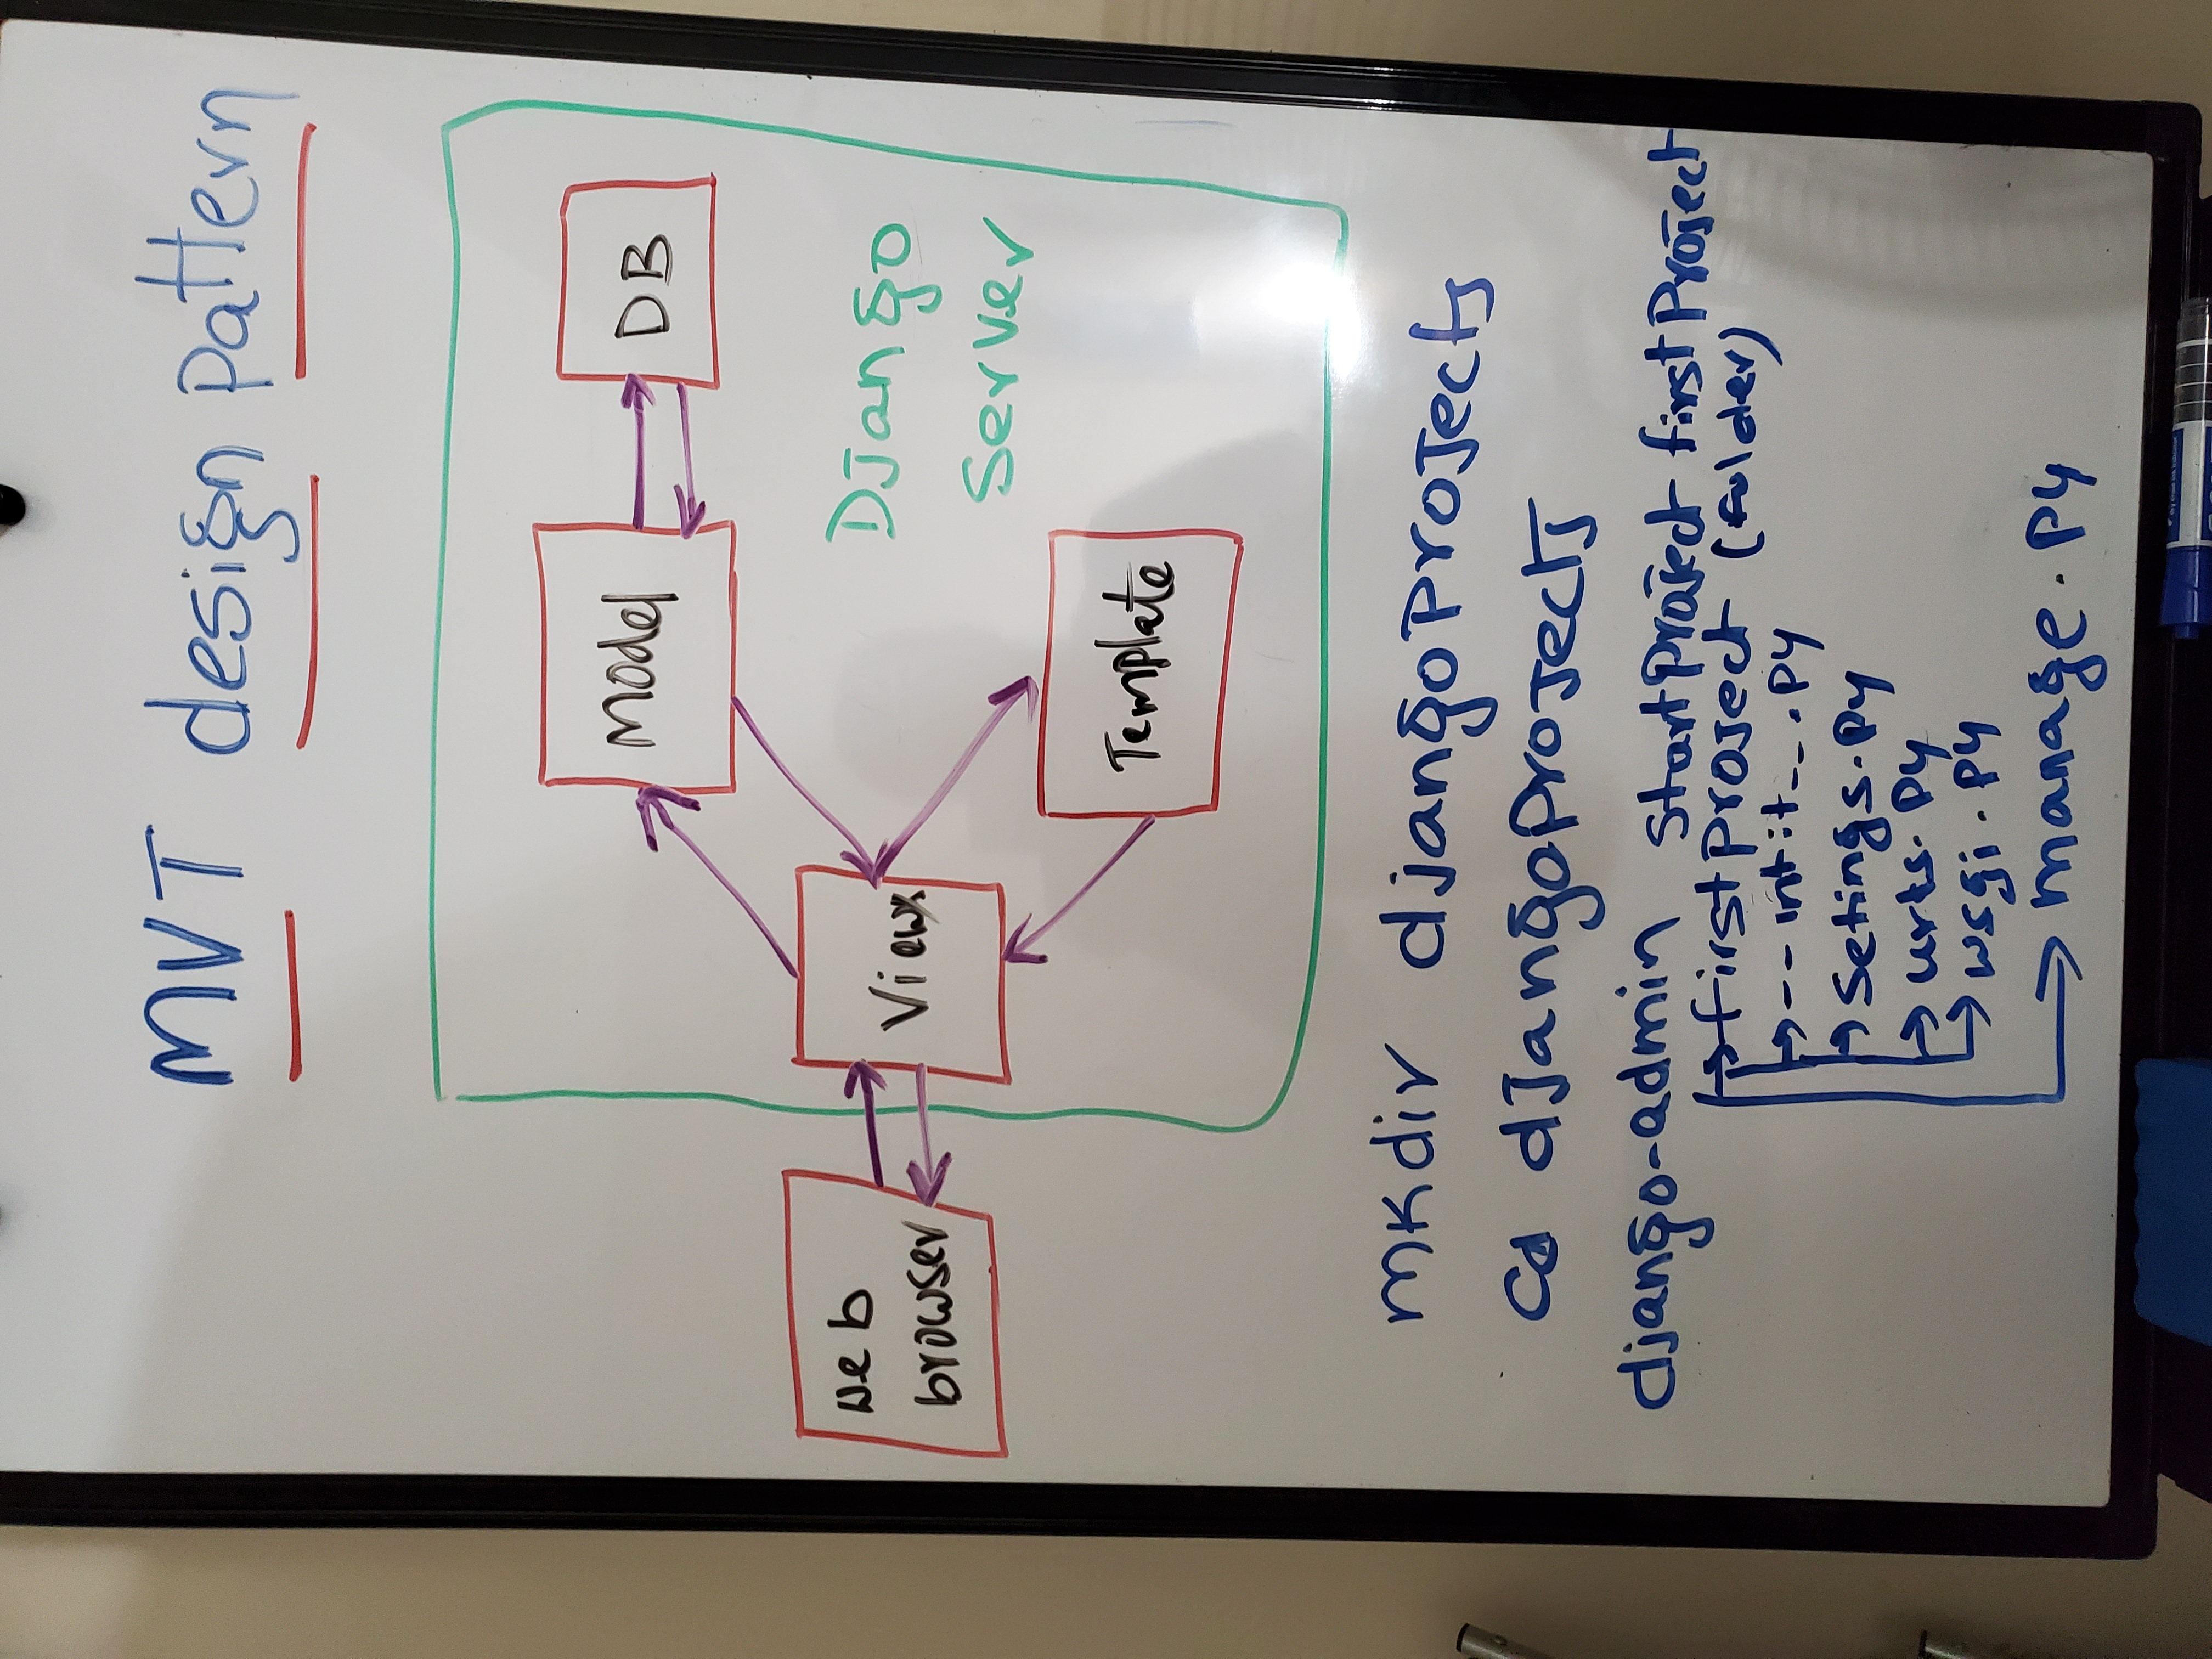 MVT design pattern
Model
DB
Web
browser
View
Django
Server
Template
mkdir djangoProjects
cd djangoProjects
django-admin startProject firstProject
firstProject (folder)
-- intit__.py
Setings.py
urls.py
wsgi.py
manage.py